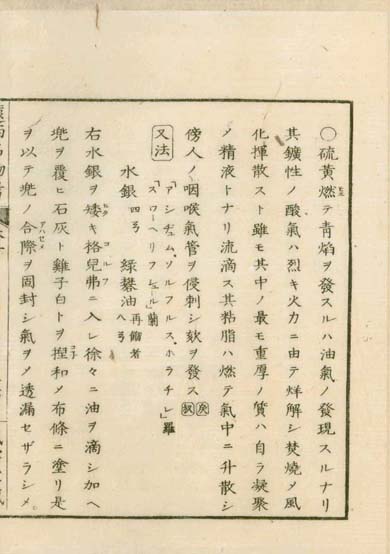 ○硫黄燃テ青焔ヲ發スルハ油氣ノ發現スルナリ
其鑛性ノ酸氣ハ烈キ火力ニ由テ烊解シ焚燒メ風
化揮散スト雖モ其中ノ最モ重厚ノ質ハ自ラ凝聚
メ精液トナリ流滴ス其粘脂ハ燃テ氣中ニ升散シ
傍人ノ咽喉氣管ヲ侵刺シ欬ヲ發ス
又法 「アシデュム、ソルフルス、ホラチレ」羅
「スワーヘリフシュール」蘭
水銀四 緑礬油再餾者八
右水銀ヲ矮キ格兒弗ニ入レ徐々ニ油ヲ滴シ加ヘ
兠ヲ覆ヒ石灰ト雞子白トヲ揑和メ布條ニ塗リ是
ヲ以テ兠ノ合際ヲ固封シ氣ヲメ透漏セザラシメ